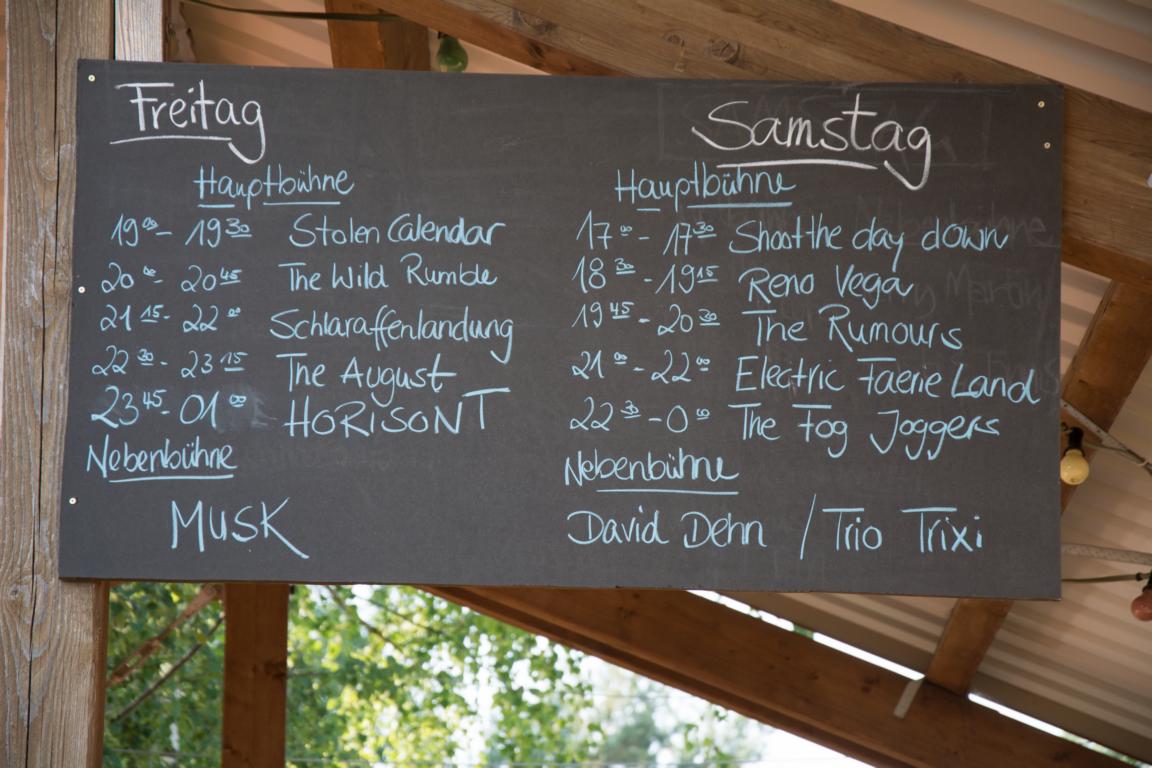 Freitag
Hauptbühne
19 00 - 19 30 Stolen Calendar
20 00 - 20 45 The Wild Rumble
21 15 - 22 00 Schlaraffenlandung
22 30 - 23 15 The August
23 45 - 01 00 HORISONT
Nebenbühne
MUSK
Samstag
Hauptbühne
17 00 - 17 30 Shoot the day down
18 30 - 19 15 Reno Vega
19 45 - 20 30 The Rumours
21 00 - 22 00 Electric Faerie Land
22 30 - 0 00 The Fog Joggers
Nebenbühne
David Dehn / Trio Trixi